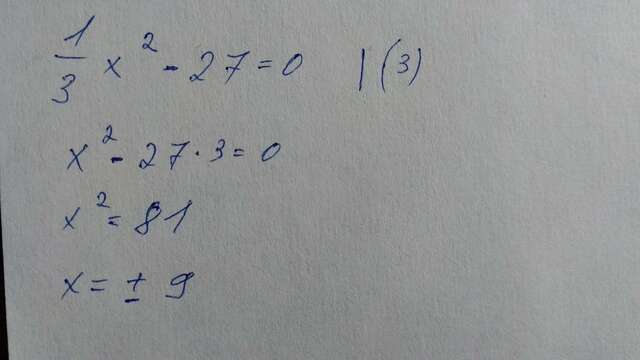 1/3 x² - 27 = 0 | (3)
x² - 27 · 3 = 0
x² = 81
x = ± 9